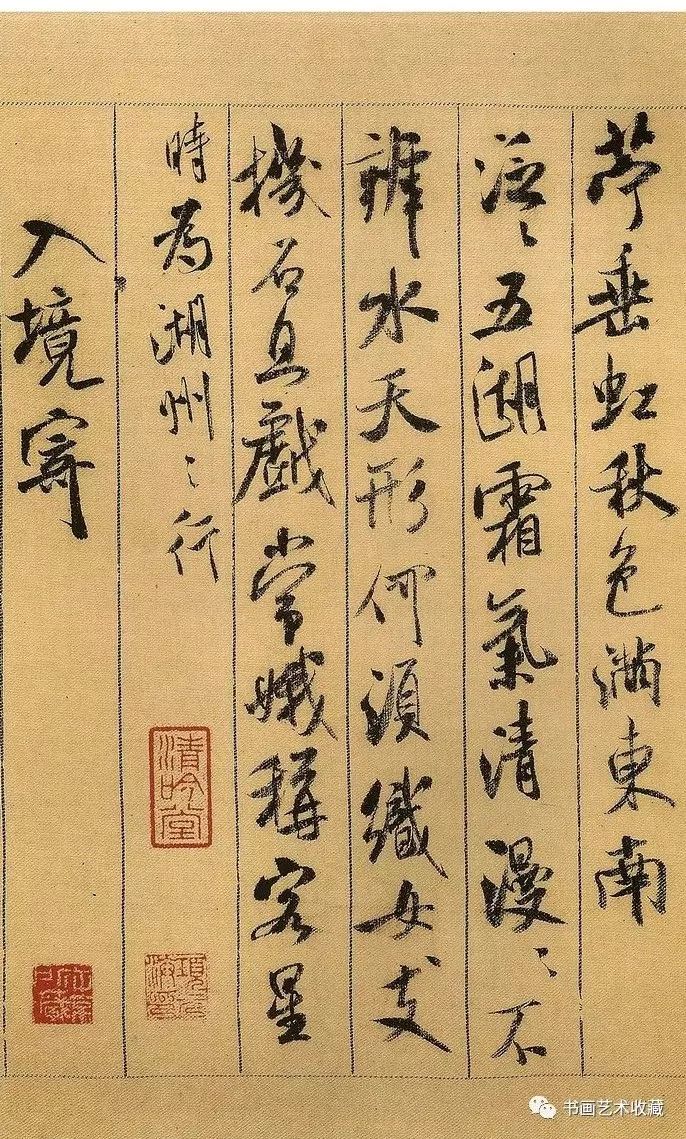 亭垂虹秋色滿東南
泛〻五湖霜氣清漫〻不
辨水天形何須織女支
機石且戲常娥稱客星
時為湖州〻行
入境寄
清吟堂
书画艺术收藏